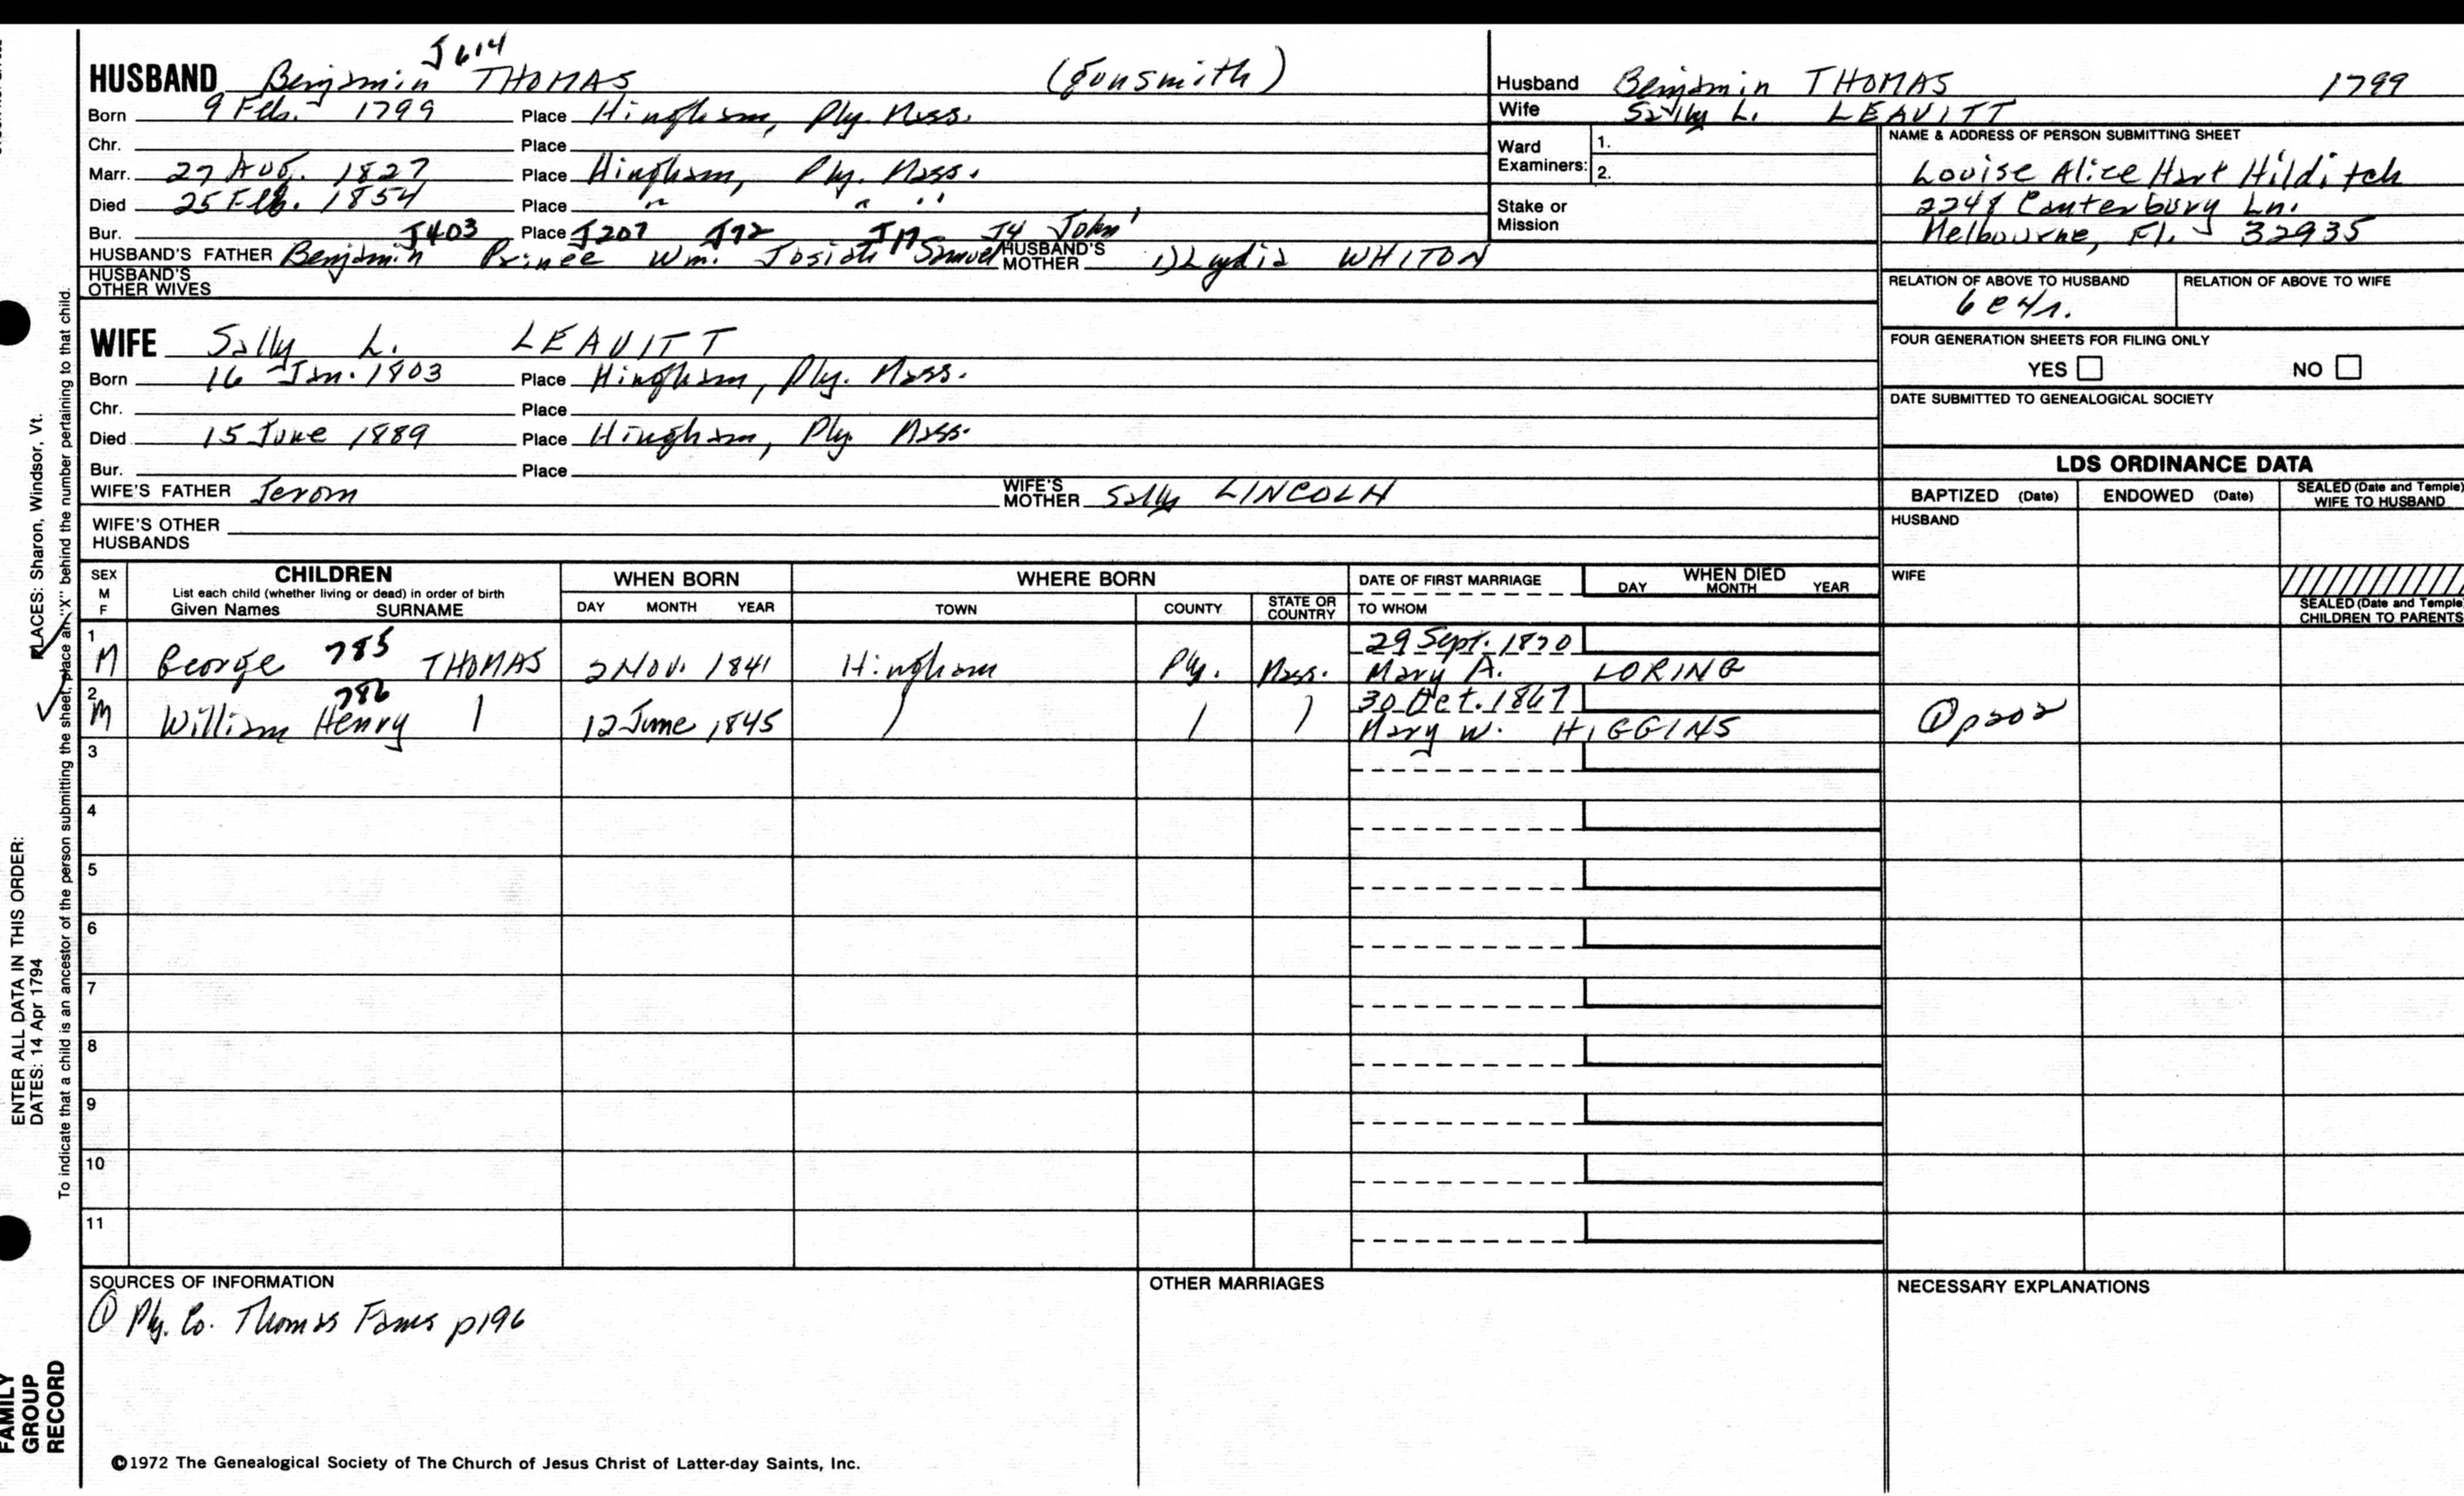 J614
HUSBAND Benjamin THOMAS (Gunsmith)
Born 9 Feb. 1799 Place Hingham, Ply. Mass.
Chr. Place
Marr. 27 Aug. 1827 Place Hingham, Ply. Mass.
Died 25 Feb. 1854 Place " " "
Bur. Place
J403 J207 J72 J17 J4 John'
HUSBAND'S FATHER Benjamin Prince Wm. Josiah Samuel HUSBAND'S MOTHER 1) Lydia WHITON
HUSBAND'S OTHER WIVES
WIFE Sally L. LEAVITT
Born 16 Jan. 1803 Place Hingham, Ply. Mass.
Chr. Place
Died 15 June 1889 Place Hingham, Ply. Mass.
Bur. Place
WIFE'S FATHER Jerom WIFE'S MOTHER Sally LINCOLN
WIFE'S OTHER HUSBANDS
Husband Benjamin THOMAS 1799
Wife Sally L. LEAVITT
Ward Examiners: 1.
2.
Stake or Mission
NAME & ADDRESS OF PERSON SUBMITTING SHEET
Louise Alice Hart Hilditch
Canterbury Ln.
Melbourne, Fl. 32935
RELATION OF ABOVE TO HUSBAND RELATION OF ABOVE TO WIFE
6c4r.
FOUR GENERATION SHEETS FOR FILING ONLY
YES NO
DATE SUBMITTED TO GENEALOGICAL SOCIETY
LDS ORDINANCE DATA
BAPTIZED (Date) ENDOWED (Date) SEALED (Date and Temple) WIFE TO HUSBAND
HUSBAND
WIFE
SEALED (Date and Temple) CHILDREN TO PARENTS
SEX M F
CHILDREN
List each child (whether living or dead) in order of birth
Given Names SURNAME
WHEN BORN
DAY MONTH YEAR
WHERE BORN
TOWN COUNTY STATE OR COUNTRY
DATE OF FIRST MARRIAGE
TO WHOM
WHEN DIED
DAY MONTH YEAR
1 785 29 Sept. 1870
M George THOMAS 2 Nov. 1841 Hingham Ply. Mass. Mary A. LORING
2 786 30 Oct. 1867
M William Henry | 12 June 1845 / / ) Mary W. HIGGINS ① p202
3
4
5
6
7
8
9
10
11
SOURCES OF INFORMATION
① Ply. Co. Thomas Fams p196
OTHER MARRIAGES
NECESSARY EXPLANATIONS
©1972 The Genealogical Society of The Church of Jesus Christ of Latter-day Saints, Inc.
PLACES: Sharon, Windsor, Vt.
To indicate that a child is an ancestor of the person submitting the sheet, place an "X" behind the number pertaining to that child.
ENTER ALL DATA IN THIS ORDER:
DATES: 14 Apr 1794
FAMILY
GROUP
RECORD